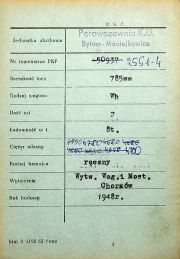 P. K. P.
Jednostka służbowa
Parowozownia K.D.
Bytom-Maciejkowice
Nr inwentarza PKP
50937 2561-4
Szerokość toru
785mm
Rodzaj wagonu
Wh
Ilość osi
2
Ładowność w t.
8t.
Ciężar własny
Rodzaj hamulca
ręczny
Wytwórnia
Wytw. Wag. i Most.
Chorzów
Rok budowy
1948r.